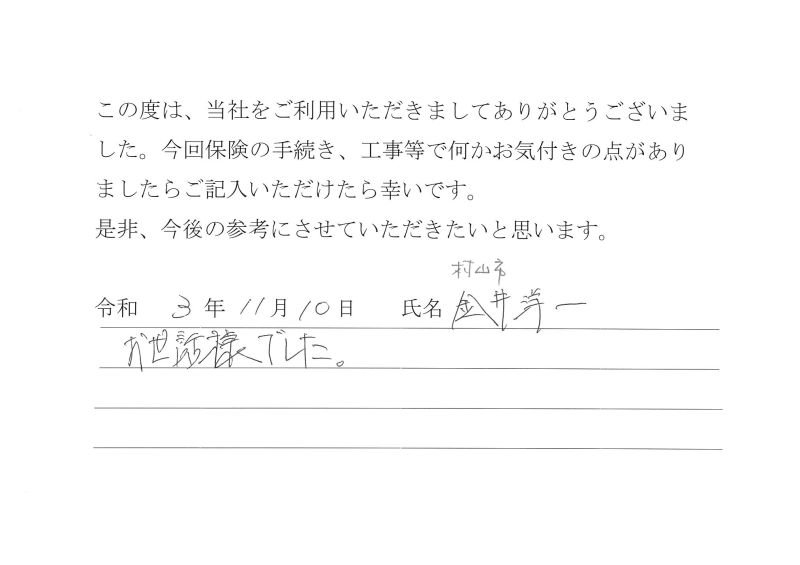 この度は、当社をご利用いただきましてありがとうございま
した。今回保険の手続き、工事等で何かお気付きの点があり
ましたらご記入いただけたら幸いです。
是非、今後の参考にさせていただきたいと思います。
村山市
令和 3 年 11 月 10 日 氏名 金井洋一
お世話様でした。